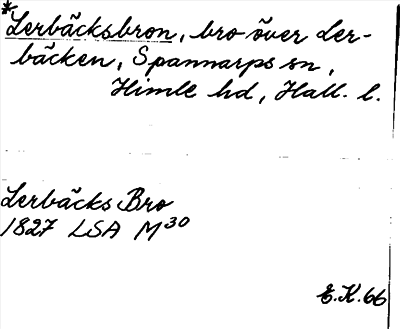 *Lerbäcksbron, bro över Ler-
bäcken, Spannarps sn,
Himle hd, Hall. l.
Lerbäcks Bro
1827 LSA M30
E.K.66